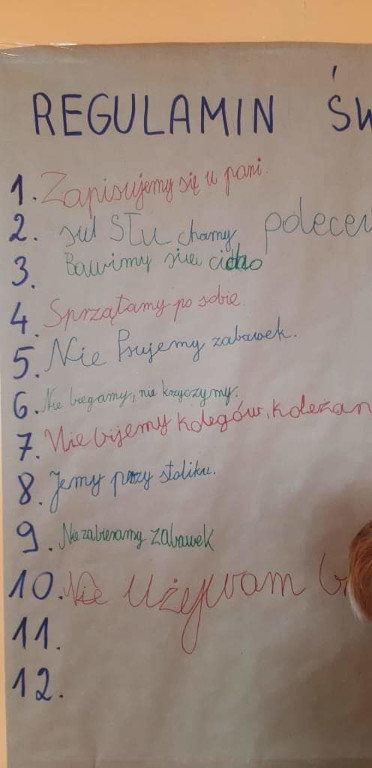 REGULAMIN ŚW
1. Zapisujemy się u pani.
2. słu Słuchamy poleceń
3. Bawimy się cicho
4. Sprzątamy po sobie.
5. Nie Psujemy zabawek.
6. Nie biegamy, nie krzyczymy.
7. Nie bijemy kolegów, koleżan
8. Jemy przy stoliku.
9. Nie zabieramy zabawek
10. Nie Użejwam
11.
12.